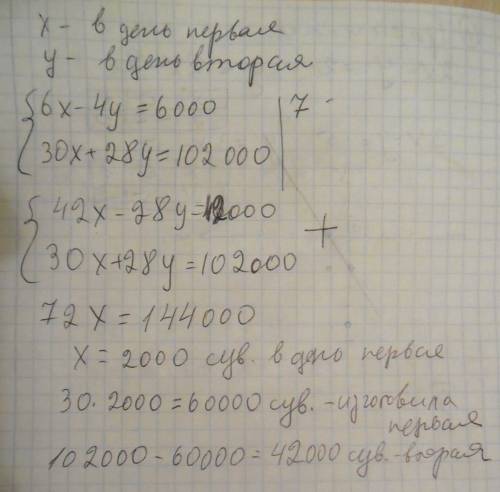 x - в день первая
y - в день вторая
6x-4y=6000 | 7
30x+28y=102000
42x-28y=42000
30x+28y=102000 +
72x=144000
x=2000 сув. в день первая
30·2000=60000 сув. - изготовила
первая
102000-60000=42000 сув. - вторая